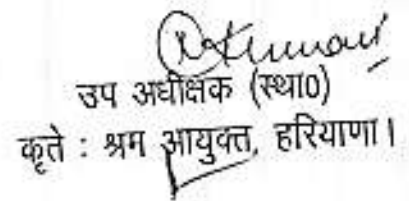 उप अधीक्षक (स्था0)
कृते : श्रम आयुक्त, हरियाणा।